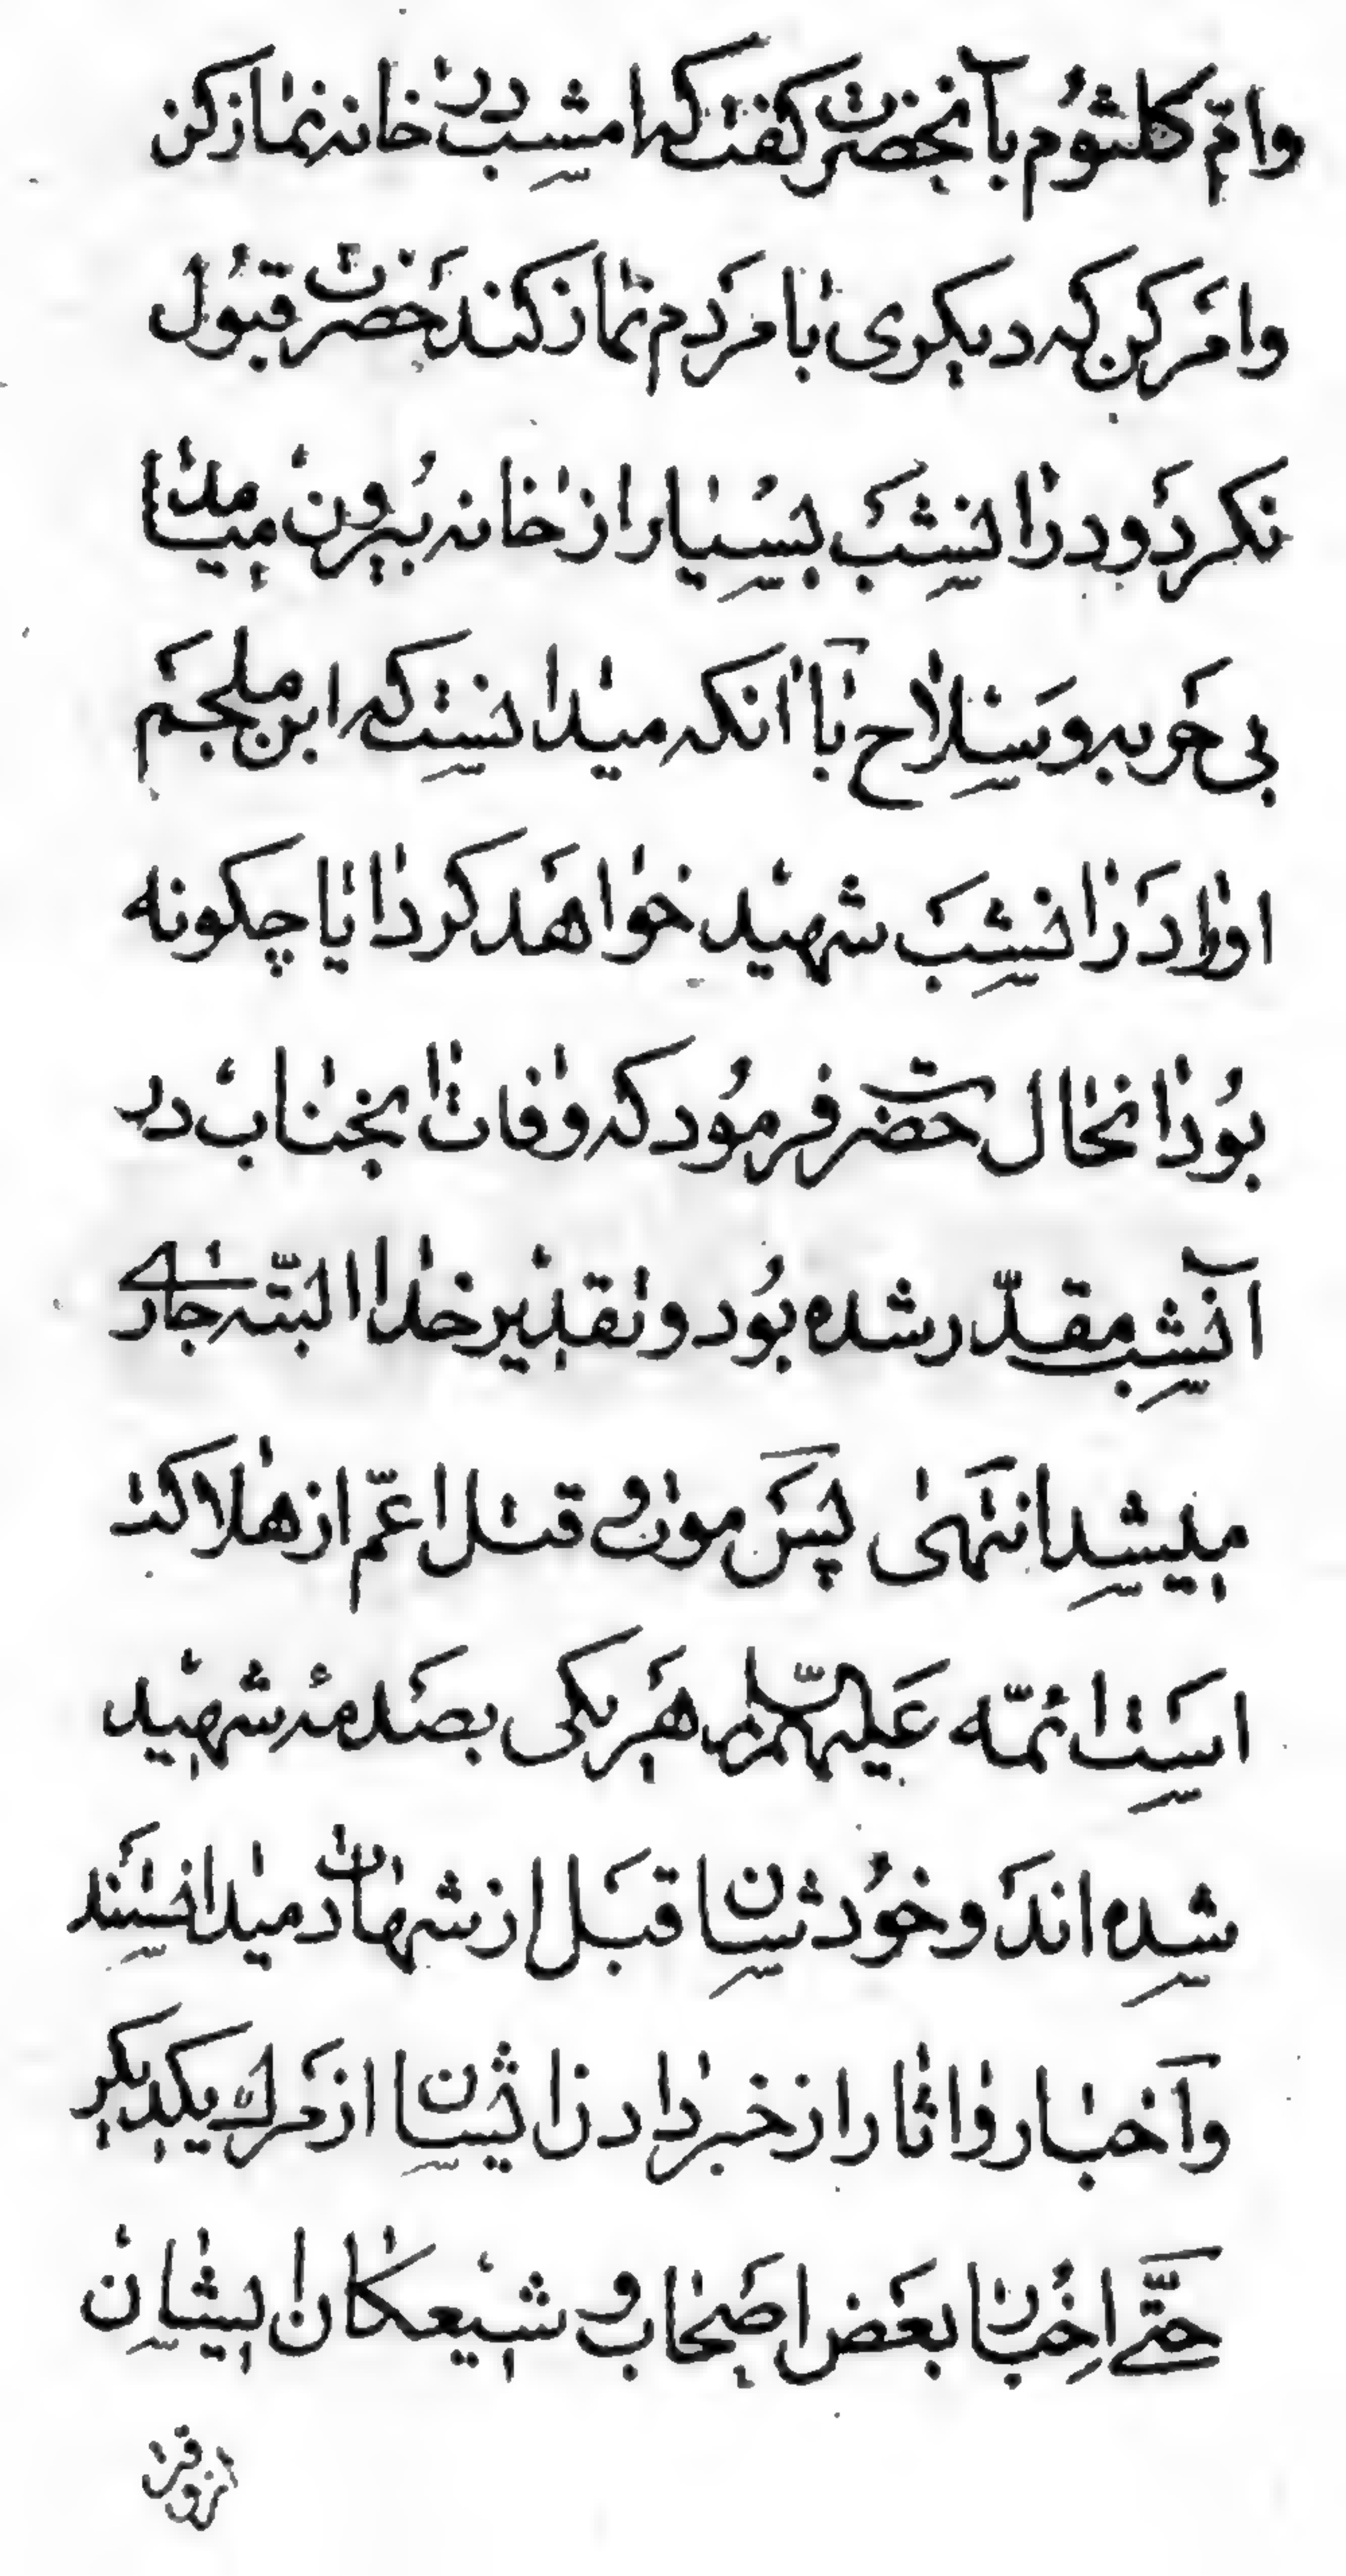 وامّ کلثوم بآنحضرت کفت که امشب در خانه نماز کن
وامر کن که دیکری با مردم نماز کند حضرت قبول
نکرد و در انشب بسیار از خانه بیرون میامد
بی حربه و سلاح با آنکه میدانست که ابن ملجم
اورا در انشب شهید خواهد کرد ایا چکونه
بود انحال حضرت فرمود که وفات انجناب در
آنشب مقدّر شده بود و تقدیر خدا البتّه جاری
میشد انتهی پس موت و قتل اعمّ از هلاکت
است ائمّه علیهم السّلام هر یکی بصدمه شهید
شده اند و خودشان قبل از شهادت میدانستند
وآخبار واثار از خبر دادن ایشان از مرك یکدیکر
حتّی اخبار بعض اصحاب و شیعکان ایشان
از وقت